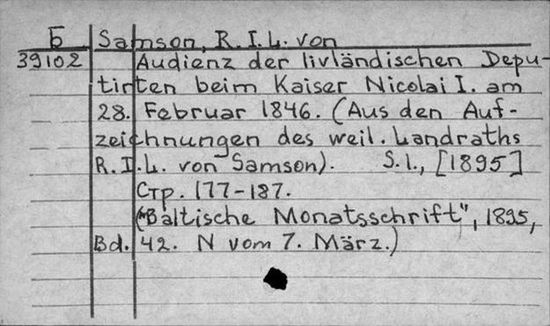 Б Samson, R. I. L. von
39102 Audienz der livländischen Depu-
tirten beim Kaiser Nicolai I. am
28. Februar 1846. (Aus den Auf-
zeichnungen des weil. Landraths
R. I. L. von Samson). S. l., [1895]
Стр. 177-187.
("Baltische Monatsschrift", 1895,
Bd. 42. N vom 7. März.)